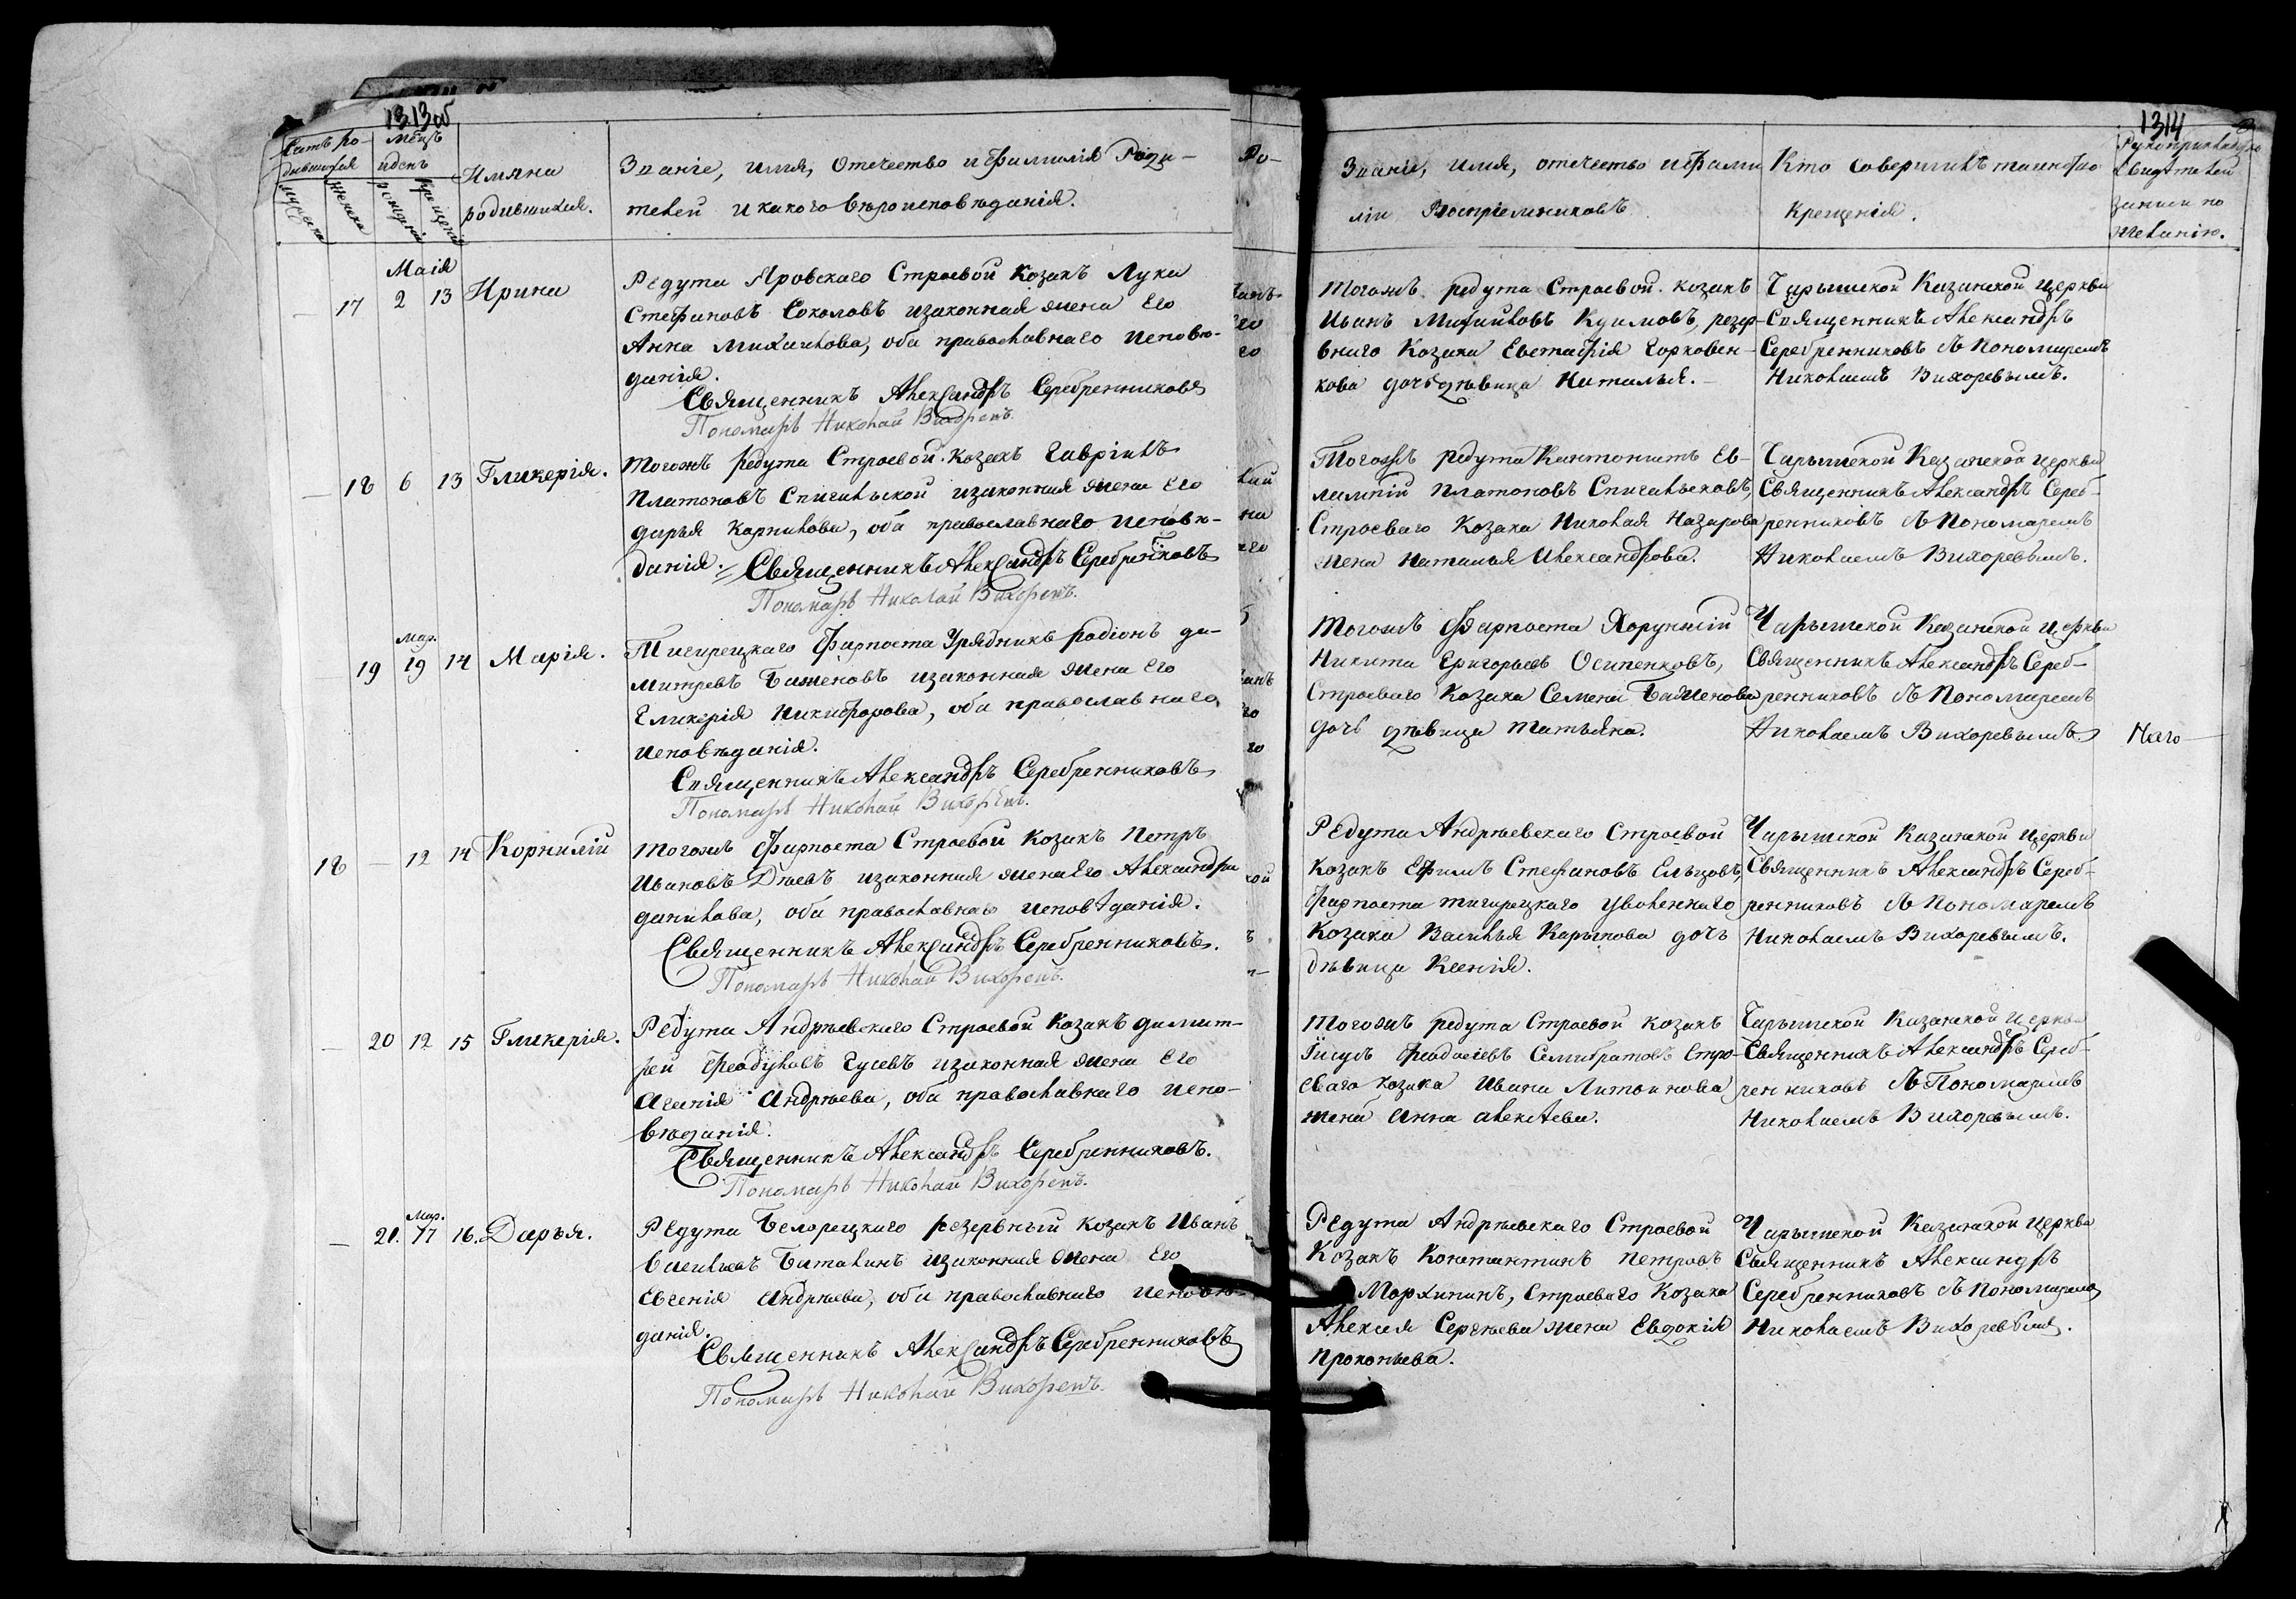 1313 об
Счетъ ро-
дившихся
Мѣцъ
и день
мужеска
женска
рожденія
крещенія
Имяна
родившихся.
Званіе, имя, отечество и фамилія Роди-
телей и какого вѣроисповѣданія.
Маія
17 2 13 Ирина
Редута Яровскаго Строевой Козакъ Лука
Стефановъ Соколовъ изаконная жена Его
Анна Михайлова, оба православнаго исповѣ-
данія.
Священникъ Александръ Серебренниковъ
Пономарь Николай Вихоревъ.
18 6 13 Гликерія.
Тогожъ редута Строевой Козакъ Гавріилъ
Платоновъ Спигальской изаконная жена Его
дарья Карпилова, оба православнаго исповѣ-
данія. Священникъ Александръ Серебренниковъ
Пономарь Николай Вихоревъ.
Мар.
19 19 14 Марія.
Тигирецкаго Фарпоста Урядникъ родіонъ ди-
митревъ Баженовъ изаконная жена Его
Гликерія Никифорова, оба православнаго
исповѣданія.
Священникъ Александръ Серебренниковъ
Пономарь Николай Вихоревъ.
18 — 12 14 Корнилій
Тогожъ Фарпоста Строевой Козакъ Петръ
Ивановъ Дѣевъ изаконная жена Его Александра
данилова, оба православнаго исповѣданія.
Священникъ Александръ Серебренниковъ.
Пономарь Николай Вихоревъ.
— 20 12 15 Гликерія.
Редута Андрѣевскаго Строевой Козакъ димит-
рей Феодуловъ Гусевъ изаконная жена Его
Агенія Андрѣева, оба православнаго испо-
вѣданія.
Священникъ Александръ Серебренниковъ.
Пономарь Николай Вихоревъ.
Мар.
— 21. 17 16. Дарья.
Редута Белорецкаго резервный козакъ Иванъ
Васильевъ Баталинъ изаконная жена Его
Евгенія Андрѣева, оба православнаго исповѣ-
данія.
Священникъ Александръ Серебренниковъ
Пономарь Николай Вихоревъ.
1314
Званіе, имя, отечество и фами
ліи Воспріемниковъ
Кто совершилъ таинство
крещенія.
Рукоприкладство
свидѣтелей
записи по
желанію.
Тогожъ редута Строевой козакъ
Иванъ Михайловъ Кдимовъ, резер-
внаго Козака Евстафія Горковен-
кова дочь дѣвица Наталья.
Чарышской Казанской церкви
Священникъ Александръ
Серебренниковъ съ Пономаремъ
Николаемъ Вихоревымъ.
Тогожъ редута Кантонистъ Ев-
лампій Платоновъ Спигальсковъ,
Строеваго Козака Николая Назарова
жена Наталья Александрова.
Чарышской Казанской церкви
Священникъ Александръ Сереб-
ренниковъ съ Пономаремъ
Николаемъ Вихоревымъ.
Тогожъ Фарпоста Хорунжій
Никита Григорьевъ Осипенковъ,
Строеваго Козака Семена Баженова
дочь дѣвица Татьяна.
Чарышской Казанской церкви
Священникъ Александръ Сереб-
ренниковъ съ Пономаремъ
Николаемъ Вихоревымъ.
Редута Андрѣевскаго Строевой
Козакъ Ефимъ Стефановъ Ельцовъ,
Фарпоста тигирецкаго уволеннаго
Козака Василья Карпова дочь
дѣвица Ксенія.
Чарышской Казанской церкви
Священникъ Александръ Сереб-
ренниковъ съ Пономаремъ
Николаемъ Вихоревымъ.
Тогожъ редута Строевой козакъ
Феодосіевъ Семибратовъ Стро-
еваго козака Ивана Литвинова
жена Анна Алексѣева.
Чарышской Казанской церкви
Священникъ Александръ Сереб-
ренниковъ съ Пономаремъ
Николаемъ Вихоревымъ.
Редута Андрѣевскаго Строевой
Козакъ Константинъ Петровъ
Морхининъ, Строеваго Козака
Алексея Сергѣева жена Евдокія
Прокопьева.
Чарышской Казанской церкви
Священникъ Александръ
Серебренниковъ съ Пономаремъ
Николаемъ Вихоревымъ.